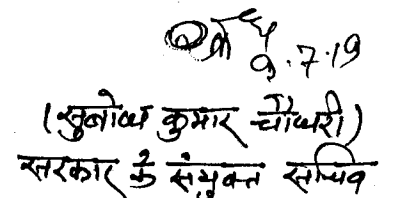 9.7.19
(सुबोध कुमार चौधरी)
सरकार के संयुक्त सचिव